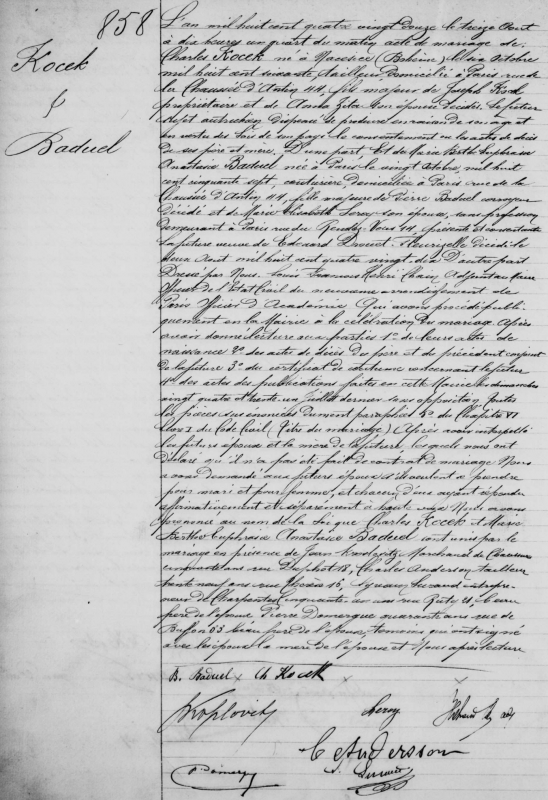 858
Kocek
&
Baduel
L'an mil huit cent quatre vingt douze le treize Aout
à dix heures un quart du matin acte de mariage de
Charles Kocek né à (Bohème) le six Octobre
mil huit cent soixante tailleur domicilié à Paris rue de
la Chaussée d'Antin 44, fils majeur de Joseph Kocek
propriétaire et de Anna son épouse décédés. Le futur
dispensé de produire en raison de son age et
en vertu des lois de son pays le consentement ou les actes de décès
de ses père et mère. D'une part, Et de Marie Berthe Euphrasie
Anastasie Baduel née à Paris le vingt Octobre mil huit
cent cinquante sept, couturière, domiciliée à Paris rue de la
Chaussée d'Antin 44, fille majeure de Pierre Baduel
décédé et de Marie Elisabeth Leroy son épouse, sans profession
demeurant à Paris rue du Rendez-Vous 14, présente et consentante
la future veuve de Edouard décédé le
deux Aout mil huit cent quatre vingt dix D'autre part
Dressé par Nous Louis François Henri Adjoint au Maire
Officier de l'Etat Civil du neuvième arrondissement de
Paris Officier d'Académie Qui avons procédé publi-
quement en la Mairie à la célébration du mariage Après
avoir donné lecture aux parties 1° de leurs actes de
naissance 2° des actes de décès du père et du précédent conjoint
de la future 3° du certificat de coutume concernant le futur
4° des actes des publications faites en cette Mairie les dimanches
vingt quatre et trente un Juillet dernier sans opposition Toutes
les pièces sus énoncées dument paraphées 5° du Chapitre VI
Livre I du Code Civil (Titre du mariage) Après avoir interpellé
les futurs époux et la mère de la future, lesquels nous ont
déclaré qu'il n'a pas été fait de contrat de mariage Nous
avons demandé aux futurs époux s'ils veulent se prendre
pour mari et pour femme, et chacun d'eux ayant répondu
affirmativement et séparément à haute voix Nous avons
prononcé au nom de la Loi que Charles Kocek et Marie
Berthe Euphrasie Anastasie Baduel sont unis par le
mariage en présence de Jean Marchand de
cinquante ans rue Duphot 18, Charles Anderson tailleur
trente neuf ans rue 15, Durand entrepre-
neur de Charpentes cinquante un ans rue 21, beau
père de l'épouse Pierre Domergue quarante ans rue de
Buffon 65 beau frère de l'épouse, témoins qui ont signé
avec les époux la mère de l'épouse et Nous après lecture
B. Baduel Ch Kocek
Leroy
C Anderson
Durand